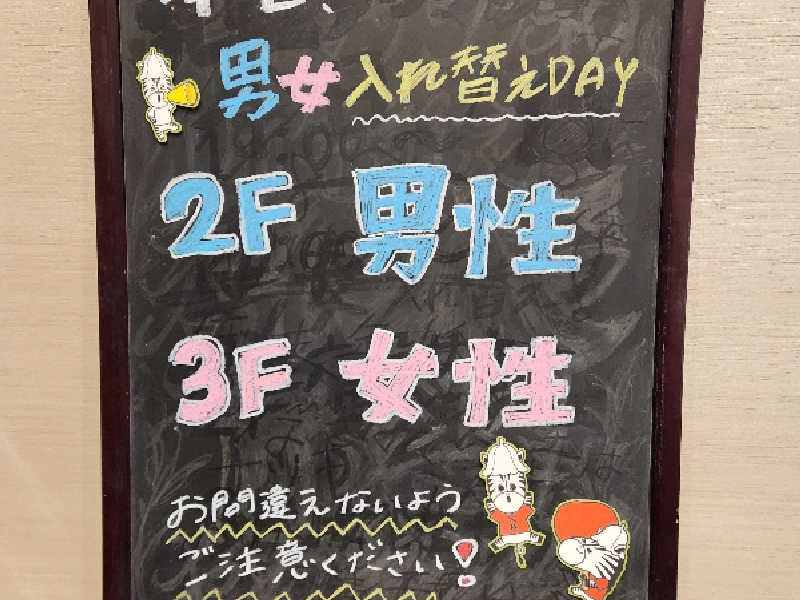 男女入れ替えDAY
2F 男性
3F 女性
お間違えないよう
ご注意ください!